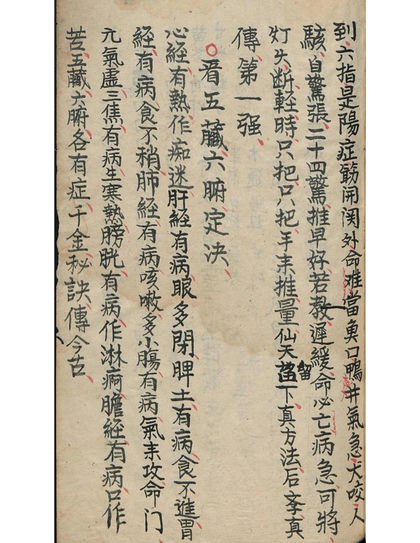 到六指是陽症筋開関外命难當奥口鴨井氣急大咬人
駭自驚張二十四驚推早好若教遲緩命必亡病急可將
灯火断輕時只把只把手来推量仙天留下真方法后孝真
傳第一强
看五臟六腑定决
心經有熱作痴迷肝經有病眼多閉脾土有病食不進胃
經有病食不稍肺經有病咳嗽多小膓有病氣来攻命门
元氣虚三焦有病生寒熱膀胱有病作淋疴膽經有病口作
苦五臟六腑各有症千金秘訣傳今古